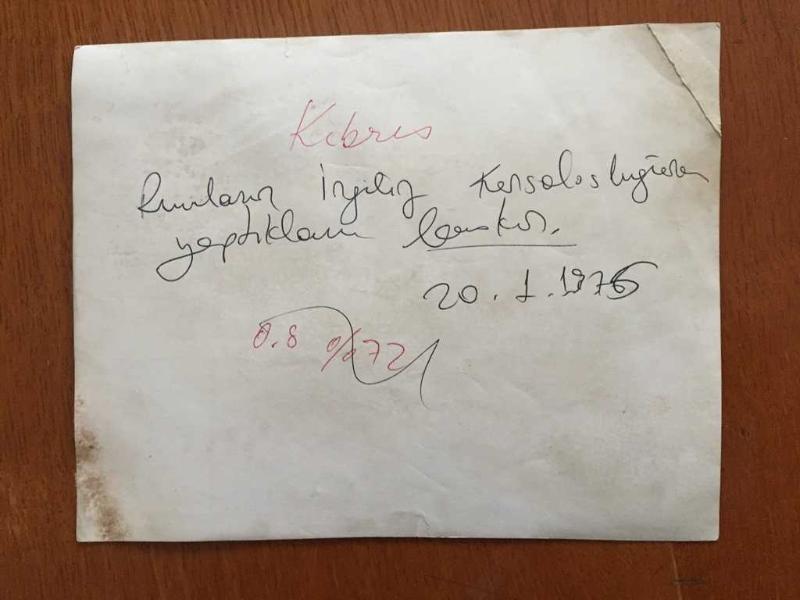 Kıbrıs
Rumların İngiliz Konsolosluğuna
yaptıkları baskın.
20.1.1975
0.8 %72